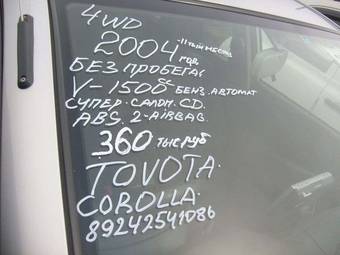 4WD
2004 -11тый месяц
год
БЕЗ ПРОБЕГА
V-1500 бенз. автомат
СУПЕР. САЛОН. CD.
ABS. 2-AIRBAG.
360 тыс руб
TOVOTA.
COROLLA.
89242541086